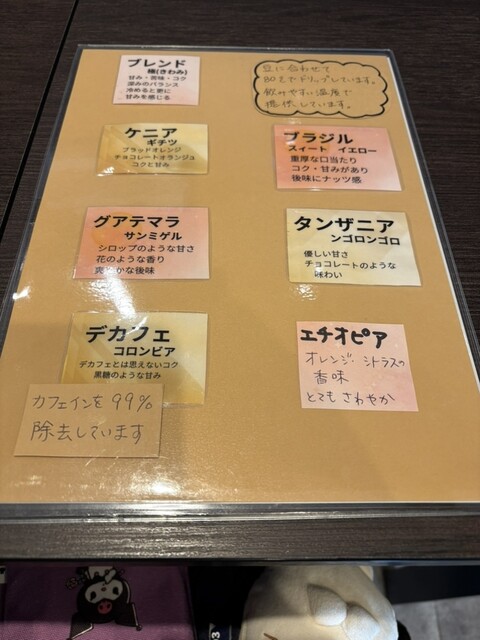 ブレンド
極(きわみ)
甘み・苦味・コク
深みのバランス
冷めると更に
甘みを感じる
豆に合わせて
80℃でドリップしています。
飲みやすい温度で
提供しています。
ケニア
ギチツ
ブラッドオレンジ
チョコレートオランジュ
コクと甘み
ブラジル
スィート イエロー
重厚な口当たり
コク・甘みがあり
後味にナッツ感
グアテマラ
サンミゲル
シロップのような甘さ
花のような香り
爽やかな後味
タンザニア
ンゴロンゴロ
優しい甘さ
チョコレートのような
味わい
デカフェ
コロンビア
デカフェとは思えないコク
黒糖のような甘み
カフェインを99%
除去しています
エチオピア
オレンジ・シトラスの
香味
とてもさわやか